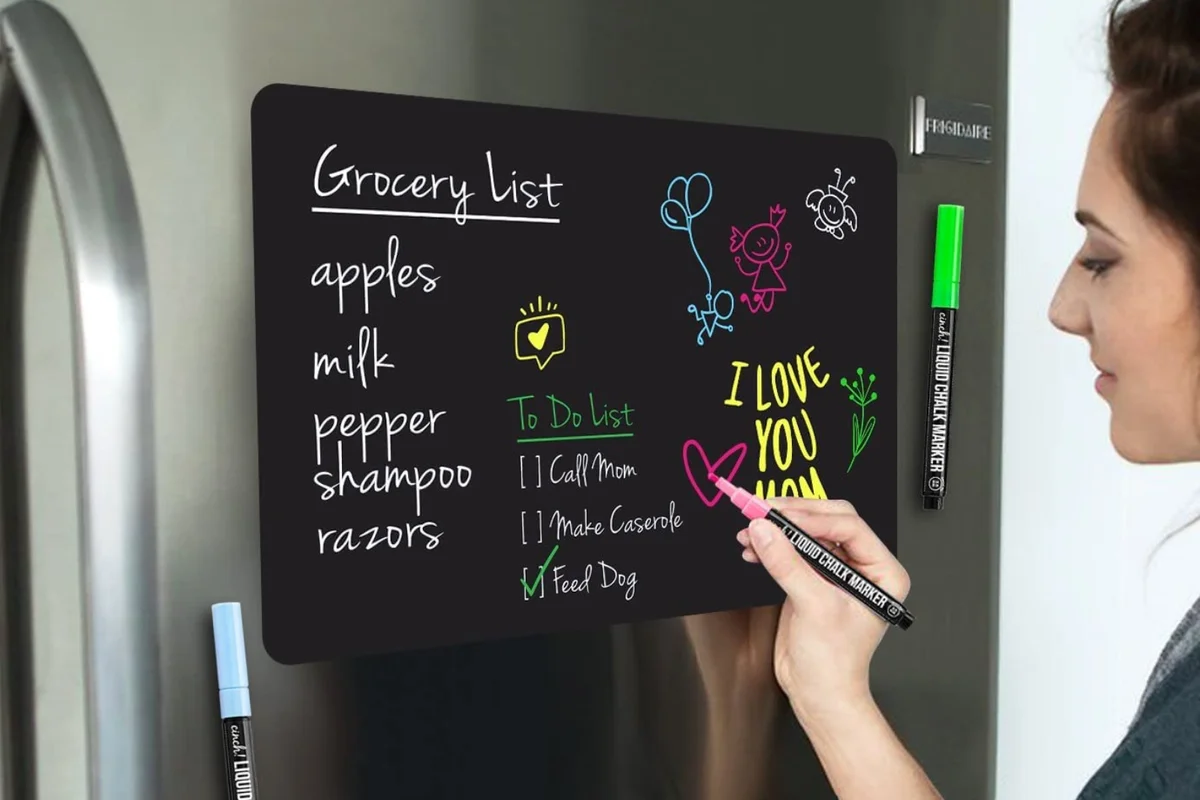 Grocery List
apples
milk
pepper
shampoo
razors
To Do List
[ ] Call Mom
[ ] Make Caserole
[ ] Feed Dog
I LOVE
YOU
MOM
FRIGIDAIRE
cinch! LIQUID CHALK MARKER
cinch! LIQUID CHALK MARKER
cinch! LIQUID